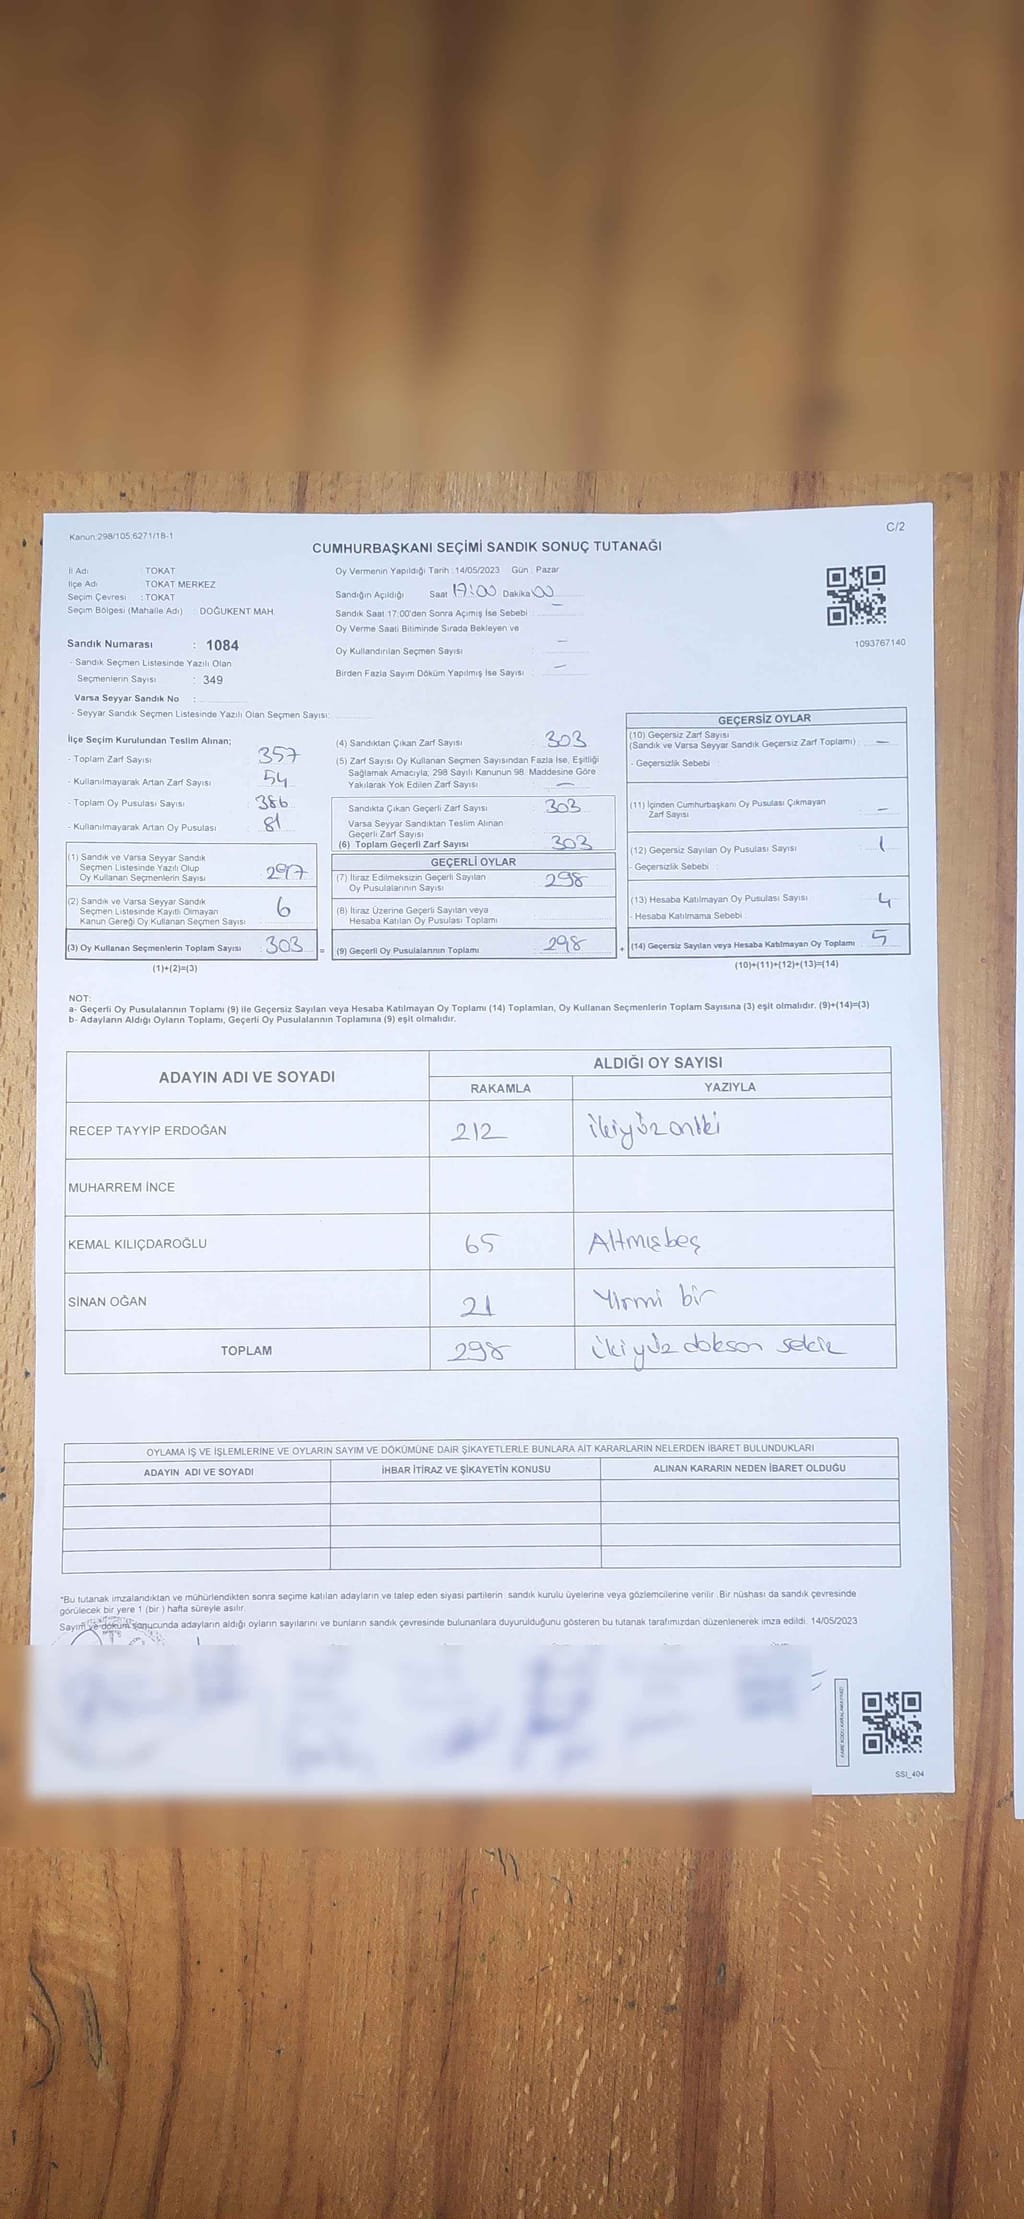 Kanun:298/105;6271/18-1
C/2
CUMHURBAŞKANI SEÇİMİ SANDIK SONUÇ TUTANAĞI
İl Adı : TOKAT
İlçe Adı : TOKAT MERKEZ
Seçim Çevresi : TOKAT
Seçim Bölgesi (Mahalle Adı) : DOĞUKENT MAH.
Oy Vermenin Yapıldığı Tarih :14/05/2023 Gün : Pazar
Sandığın Açıldığı Saat 17:00 Dakika 00
Sandık Saat 17:00'den Sonra Açımış İse Sebebi : —
Oy Verme Saati Bitiminde Sırada Bekleyen ve
Oy Kullandırılan Seçmen Sayısı : —
Birden Fazla Sayım Döküm Yapılmış İse Sayısı : —
1093767140
Sandık Numarası : 1084
- Sandık Seçmen Listesinde Yazılı Olan
Seçmenlerin Sayısı : 349
Varsa Seyyar Sandık No :
- Seyyar Sandık Seçmen Listesinde Yazılı Olan Seçmen Sayısı:
İlçe Seçim Kurulundan Teslim Alınan;
- Toplam Zarf Sayısı : 357
- Kullanılmayarak Artan Zarf Sayısı : 54
- Toplam Oy Pusulası Sayısı : 386
- Kullanılmayarak Artan Oy Pusulası : 81
(1) Sandık ve Varsa Seyyar Sandık
Seçmen Listesinde Yazılı Olup
Oy Kullanan Seçmenlerin Sayısı : 297
(2) Sandık ve Varsa Seyyar Sandık
Seçmen Listesinde Kayıtlı Olmayan
Kanun Gereği Oy Kullanan Seçmen Sayısı : 6
(3) Oy Kullanan Seçmenlerin Toplam Sayısı : 303 =
(1)+(2)=(3)
(4) Sandıktan Çıkan Zarf Sayısı : 303
(5) Zarf Sayısı Oy Kullanan Seçmen Sayısından Fazla İse, Eşitliği
Sağlamak Amacıyla; 298 Sayılı Kanunun 98. Maddesine Göre
Yakılarak Yok Edilen Zarf Sayısı : —
Sandıkta Çıkan Geçerli Zarf Sayısı : 303
Varsa Seyyar Sandıktan Teslim Alınan
Geçerli Zarf Sayısı
(6) Toplam Geçerli Zarf Sayısı : 303
GEÇERLİ OYLAR
(7) İtiraz Edilmeksizin Geçerli Sayılan
Oy Pusulalarının Sayısı : 298
(8) İtiraz Üzerine Geçerli Sayılan veya
Hesaba Katılan Oy Pusulası Toplamı :
(9) Geçerli Oy Pusulalarının Toplamı : 298 +
GEÇERSİZ OYLAR
(10) Geçersiz Zarf Sayısı
(Sandık ve Varsa Seyyar Sandık Geçersiz Zarf Toplamı) : —
- Geçersizlik Sebebi :
(11) İçinden Cumhurbaşkanı Oy Pusulası Çıkmayan
Zarf Sayısı : —
(12) Geçersiz Sayılan Oy Pusulası Sayısı : 1
- Geçersizlik Sebebi :
(13) Hesaba Katılmayan Oy Pusulası Sayısı : 4
- Hesaba Katılmama Sebebi :
(14) Geçersiz Sayılan veya Hesaba Katılmayan Oy Toplamı : 5
(10)+(11)+(12)+(13)=(14)
NOT:
a- Geçerli Oy Pusulalarının Toplamı (9) ile Geçersiz Sayılan veya Hesaba Katılmayan Oy Toplamı (14) Toplamları, Oy Kullanan Seçmenlerin Toplam Sayısına (3) eşit olmalıdır. (9)+(14)=(3)
b- Adayların Aldığı Oyların Toplamı, Geçerli Oy Pusulalarının Toplamına (9) eşit olmalıdır.
ADAYIN ADI VE SOYADI
ALDIĞI OY SAYISI
RAKAMLA YAZIYLA
RECEP TAYYİP ERDOĞAN 212 ikiyüz oniki
MUHARREM İNCE
KEMAL KILIÇDAROĞLU 65 Altmışbeş
SİNAN OĞAN 21 Yirmi bir
TOPLAM 298 ikiyüz dokson sekiz
OYLAMA İŞ VE İŞLEMLERİNE VE OYLARIN SAYIM VE DÖKÜMÜNE DAİR ŞİKAYETLERLE BUNLARA AİT KARARLARIN NELERDEN İBARET BULUNDUKLARI
ADAYIN ADI VE SOYADI İHBAR İTİRAZ VE ŞİKAYETİN KONUSU ALINAN KARARIN NEDEN İBARET OLDUĞU
*Bu tutanak imzalandıktan ve mühürlendikten sonra seçime katılan adayların ve talep eden siyasi partilerin sandık kurulu üyelerine veya gözlemcilerine verilir. Bir nüshası da sandık çevresinde
görülecek bir yere 1 (bir ) hafta süreyle asılır.
Sayım ve döküm sonucunda adayların aldığı oyların sayılarını ve bunların sandık çevresinde bulunanlara duyurulduğunu gösteren bu tutanak tarafımızdan düzenlenerek imza edildi. 14/05/2023
SSI_404